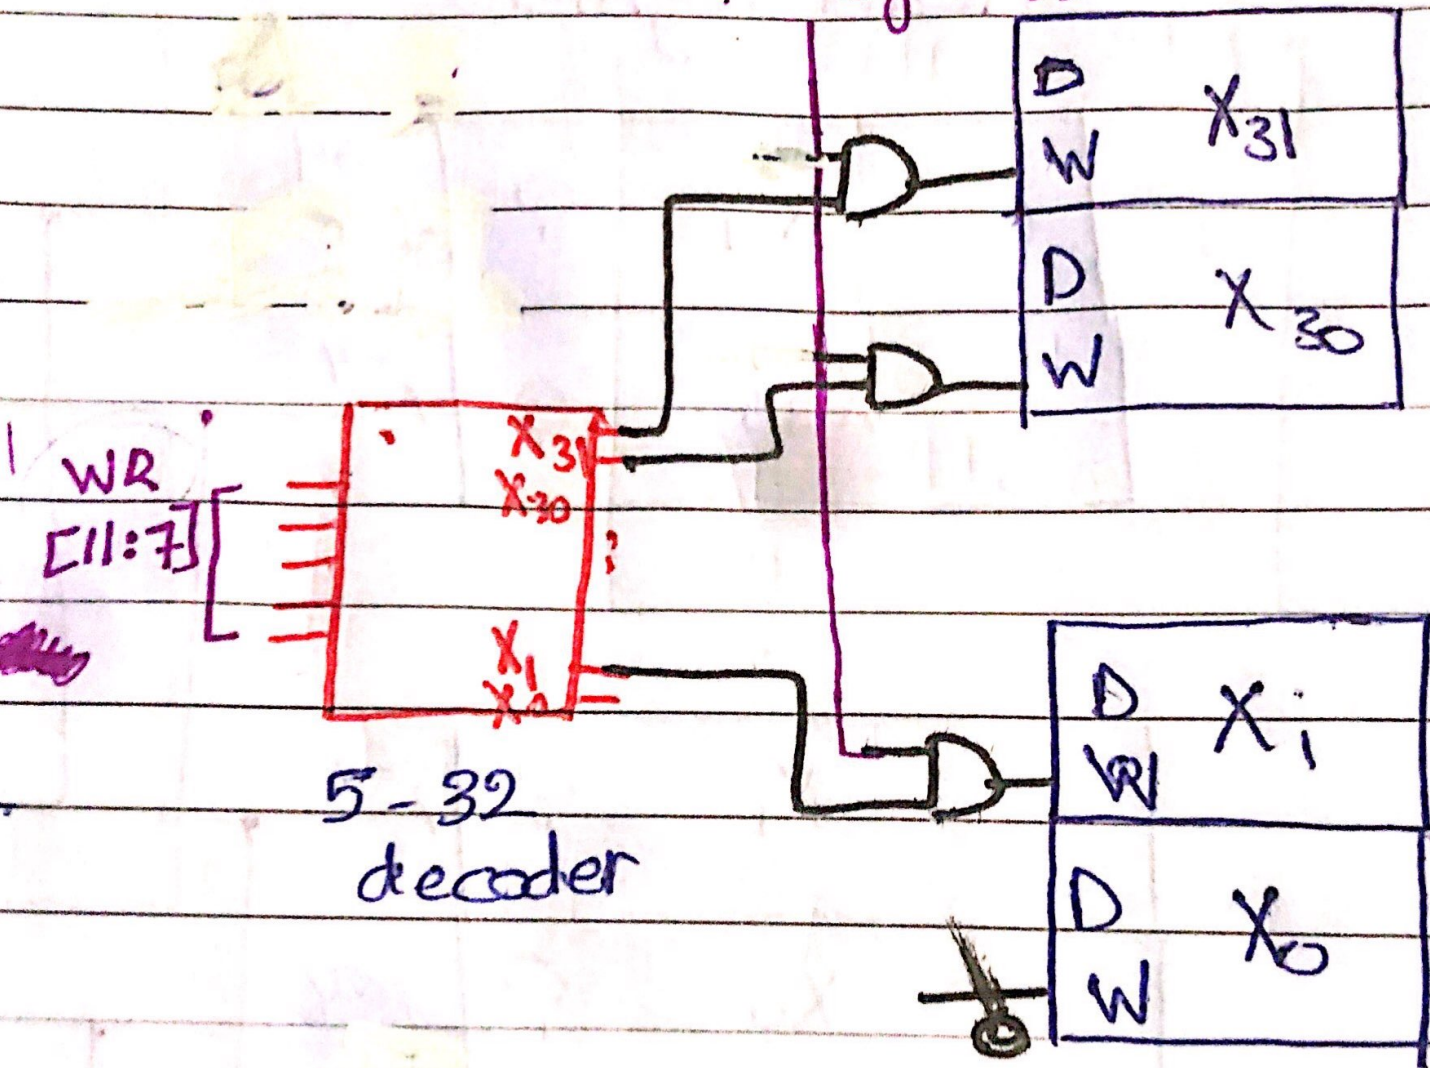 D
W X31
D
W X30
WR
[11:7]
X31
X30
X1
X0
5-32
decoder
D
W Xi
D
W X0